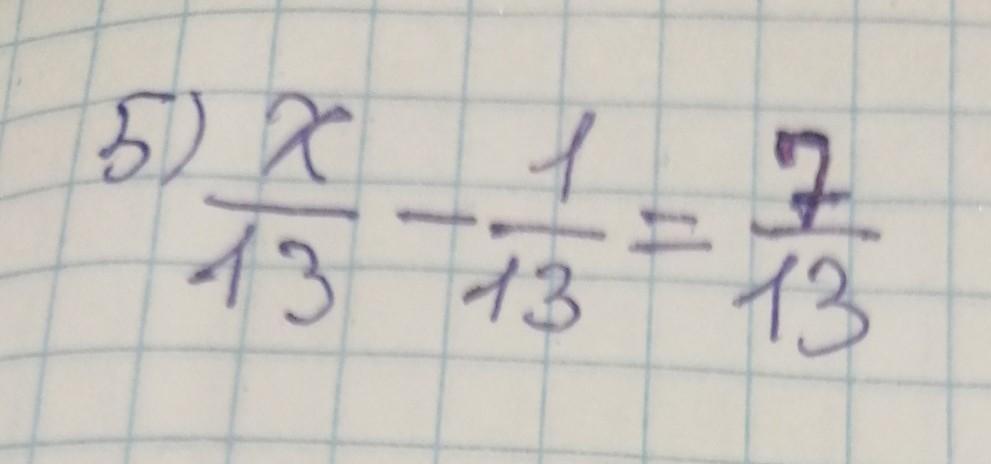 5) x/13 - 1/13 = 7/13